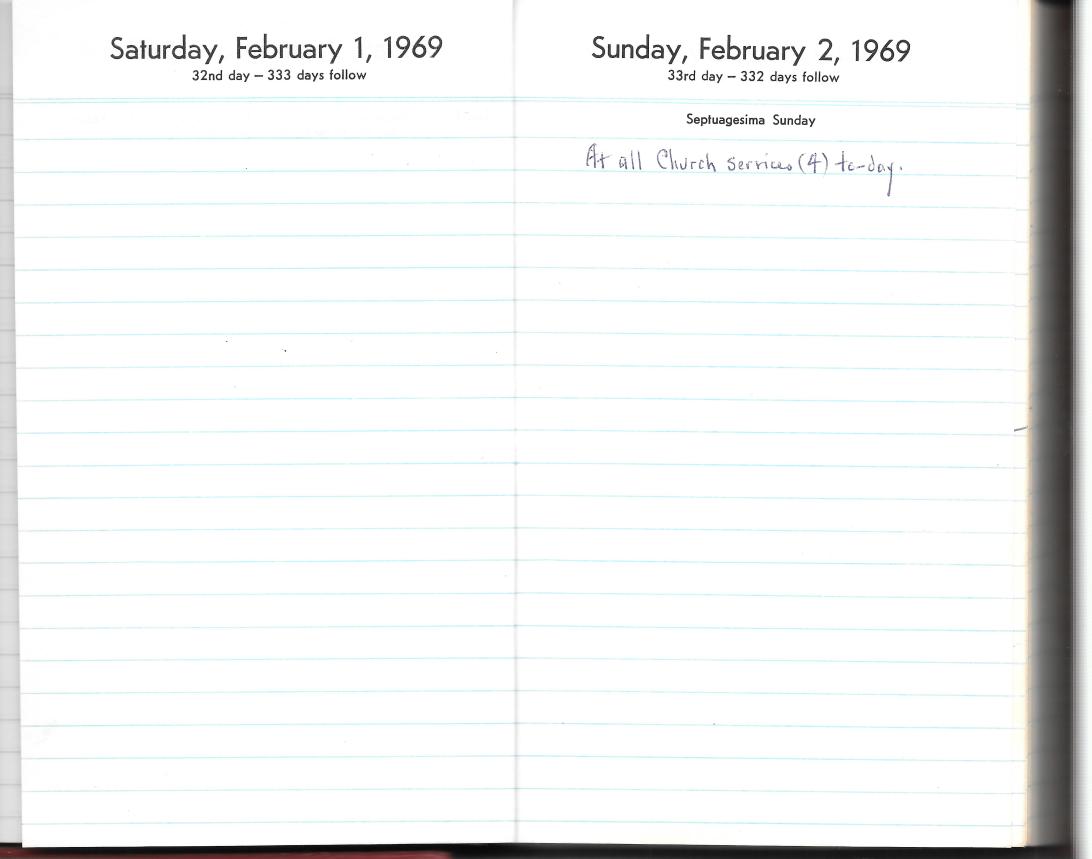 Saturday, February 1, 1969
32nd day – 333 days follow
Sunday, February 2, 1969
33rd day – 332 days follow
Septuagesima Sunday
At all Church services (4) to-day.